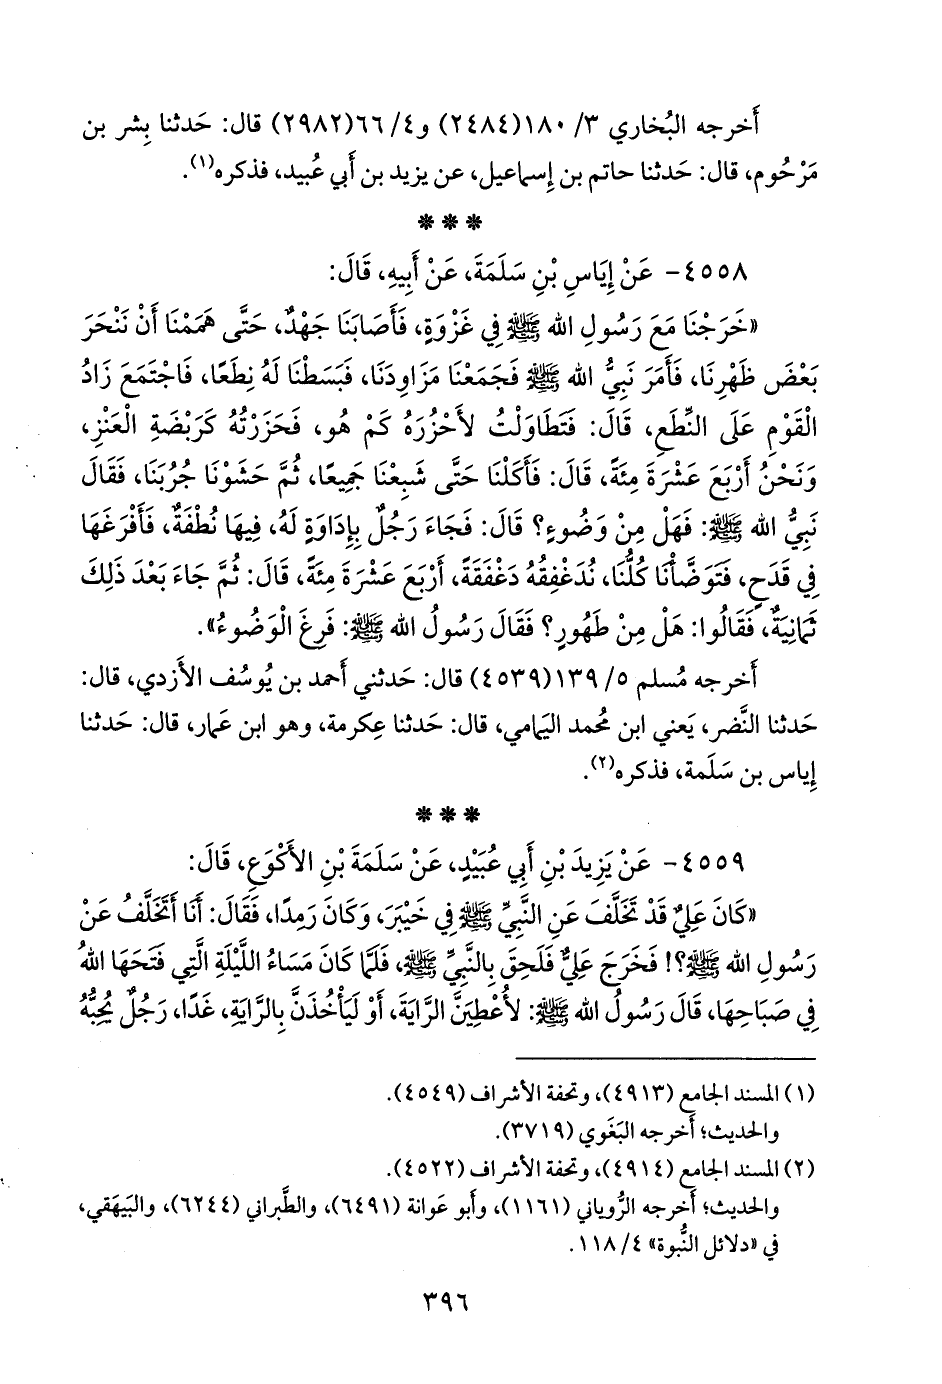 أَخرجه البُخاري ٣/ ١٨٠(٢٤٨٤) و٤/ ٦٦(٢٩٨٢) قال: حَدثنا بِشر بن
مَرْحُوم، قال: حَدثنا حاتم بن إِسماعيل، عن يزيد بن أَبي عُبيد، فذكره(١).
* * *
٤٥٥٨- عَنْ إِيَاسِ بْنِ سَلَمَةَ، عَنْ أَبِيهِ، قَالَ:
«خَرَجْنَا مَعَ رَسُولِ الله ﷺ فِي غَزْوَةٍ، فَأَصَابَنَا جَهْدٌ، حَتَّى هَمَمْنَا أَنْ نَنْحَرَ
بَعْضَ ظَهْرِنَا، فَأَمَرَ نَبِيُّ الله ﷺ فَجَمَعْنَا مَزَاوِدَنَا، فَبَسَطْنَا لَهُ نِطَعًا، فَاجْتَمَعَ زَادُ
الْقَوْمِ عَلَى النِّطَعِ، قَالَ: فَتَطَاوَلْتُ لأَحْزُرَهُ كَمْ هُو، فَحَزَرْتُهُ كَرَبْضَةِ الْعَنْزِ،
وَنَحْنُ أَرْبَعَ عَشْرَةَ مِئَةً، قَالَ: فَأَكَلْنَا حَتَّى شَبِعْنَا جَمِيعًا، ثُمَّ حَشَوْنَا جُرُبَنَا، فَقَالَ
نَبِيُّ الله ﷺ: فَهَلْ مِنْ وَضُوءٍ؟ قَالَ: فَجَاءَ رَجُلٌ بِإِدَاوَةٍ لَهُ، فِيهَا نُطْفَةٌ، فَأَفْرَغَهَا
فِي قَدَحٍ، فَتَوَضَّأْنَا كُلُّنَا، نُدَغْفِقُهُ دَغْفَقَةً، أَرْبَعَ عَشْرَةَ مِئَةً، قَالَ: ثُمَّ جَاءَ بَعْدَ ذَلِكَ
ثَمَانِيَةٌ، فَقَالُوا: هَلْ مِنْ طَهُورٍ؟ فَقَالَ رَسُولُ الله ﷺ: فَرِغَ الْوَضُوءُ».
أَخرجه مُسلم ٥/ ١٣٩(٤٥٣٩) قال: حَدثني أَحمد بن يُوسُف الأَزدي، قال:
حَدثنا النَّضر، يَعني ابن مُحمد اليَمامي، قال: حَدثنا عِكرمة، وهو ابن عَمار، قال: حَدثنا
إِياس بن سَلَمة، فذكره(٢).
* * *
٤٥٥٩- عَنْ يَزِيدَ بْنِ أَبِي عُبَيْدٍ، عَنْ سَلَمَةَ بْنِ الأَكْوَعِ، قَالَ:
«كَانَ عَلِيٌّ قَدْ تَخَلَّفَ عَنِ النَّبِيِّ ﷺ فِي خَيْبَرَ، وَكَانَ رَمِدًا، فَقَالَ: أَنَا أَتَخَلَّفُ عَنْ
رَسُولِ الله ﷺ؟! فَخَرَجَ عَلِيٌّ فَلَحِقَ بِالنَّبِيِّ ﷺ، فَلَمَّا كَانَ مَسَاءُ اللَّيْلَةِ الَّتِي فَتَحَهَا اللهُ
فِي صَبَاحِهَا، قَالَ رَسُولُ الله ﷺ: لأُعْطِيَنَّ الرَّايَةَ، أَوْ لَيَأْخُذَنَّ بِالرَّايَةِ، غَدًا، رَجُلٌ يُحِبُّهُ
(١) المسند الجامع (٤٩١٣)، وتحفة الأشراف (٤٥٤٩).
والحديث؛ أَخرجه البَغَوي (٣٧١٩).
(٢) المسند الجامع (٤٩١٤)، وتحفة الأشراف (٤٥٢٢).
والحديث؛ أَخرجه الرُّوياني (١١٦١)، وأَبو عَوانة (٦٤٩١)، والطَّبراني (٦٢٤٤)، والبَيهَقي،
في «دلائل النُّبوة» ٤/ ١١٨.
٣٩٦